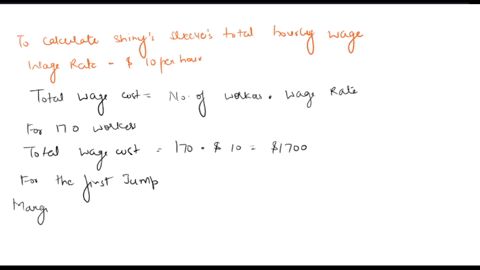 To calculate shiny's sleeve's total hourly wage
Wage Rate - $ 10 per hour
Total wage cost = No. of worker . wage Rate
For 170 worker
Total wage cost = 170 . $ 10 = $1700
For the first Jump
Marg